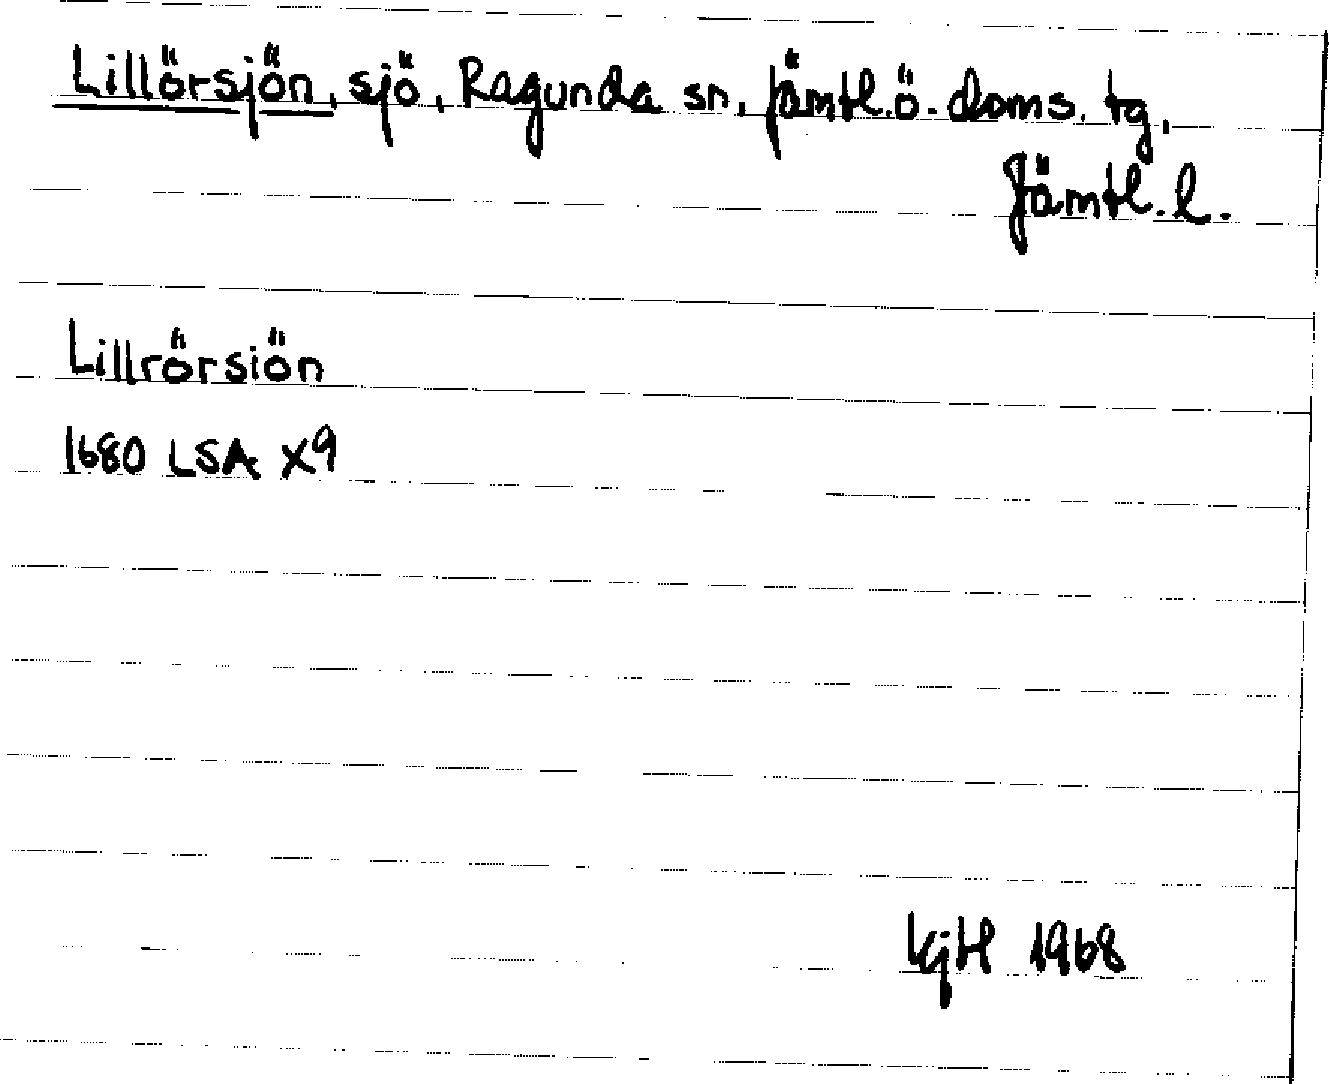 Lillörsjön, sjö, Ragunda sn, Jämtl. ö. doms. tg,
Jämtl. l.
Lillrörsiön
1680 LSA X9
LgH 1968